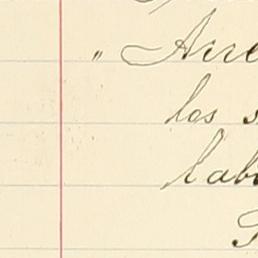 " Arre
los s
lab